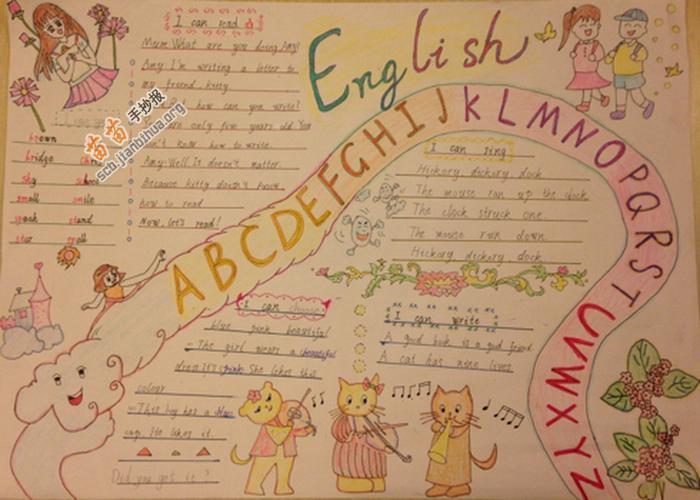 English
I can read
Mom: What are you doing Amy?
Amy: I'm writing a letter to
my friend kitty.
how can you write!
are only five years old You
don't know how to write.
Amy: Well. It doesn't matter.
Because kitty doesn't know
how to read
Now, let's read!
brown
bridge
sky school
small smile
speak stand
star
苗苗手抄报
scb.jianbihua.org
ABCDEFGHIJKLMNOPQRSTUVWXYZ
I can sing
Hickory, dickory, dock
The mouse ran up the clock.
The clock struck one
The mouse run down.
Hickory dickory, dock.
I can choose
blue pink beautiful
The girl wears a beautiful
dress. It's pink. She likes this
colour
This boy has a blue
cap. He likes it.
Did you got it?
I can write
A good book is a good friend.
A cat has nine lives.